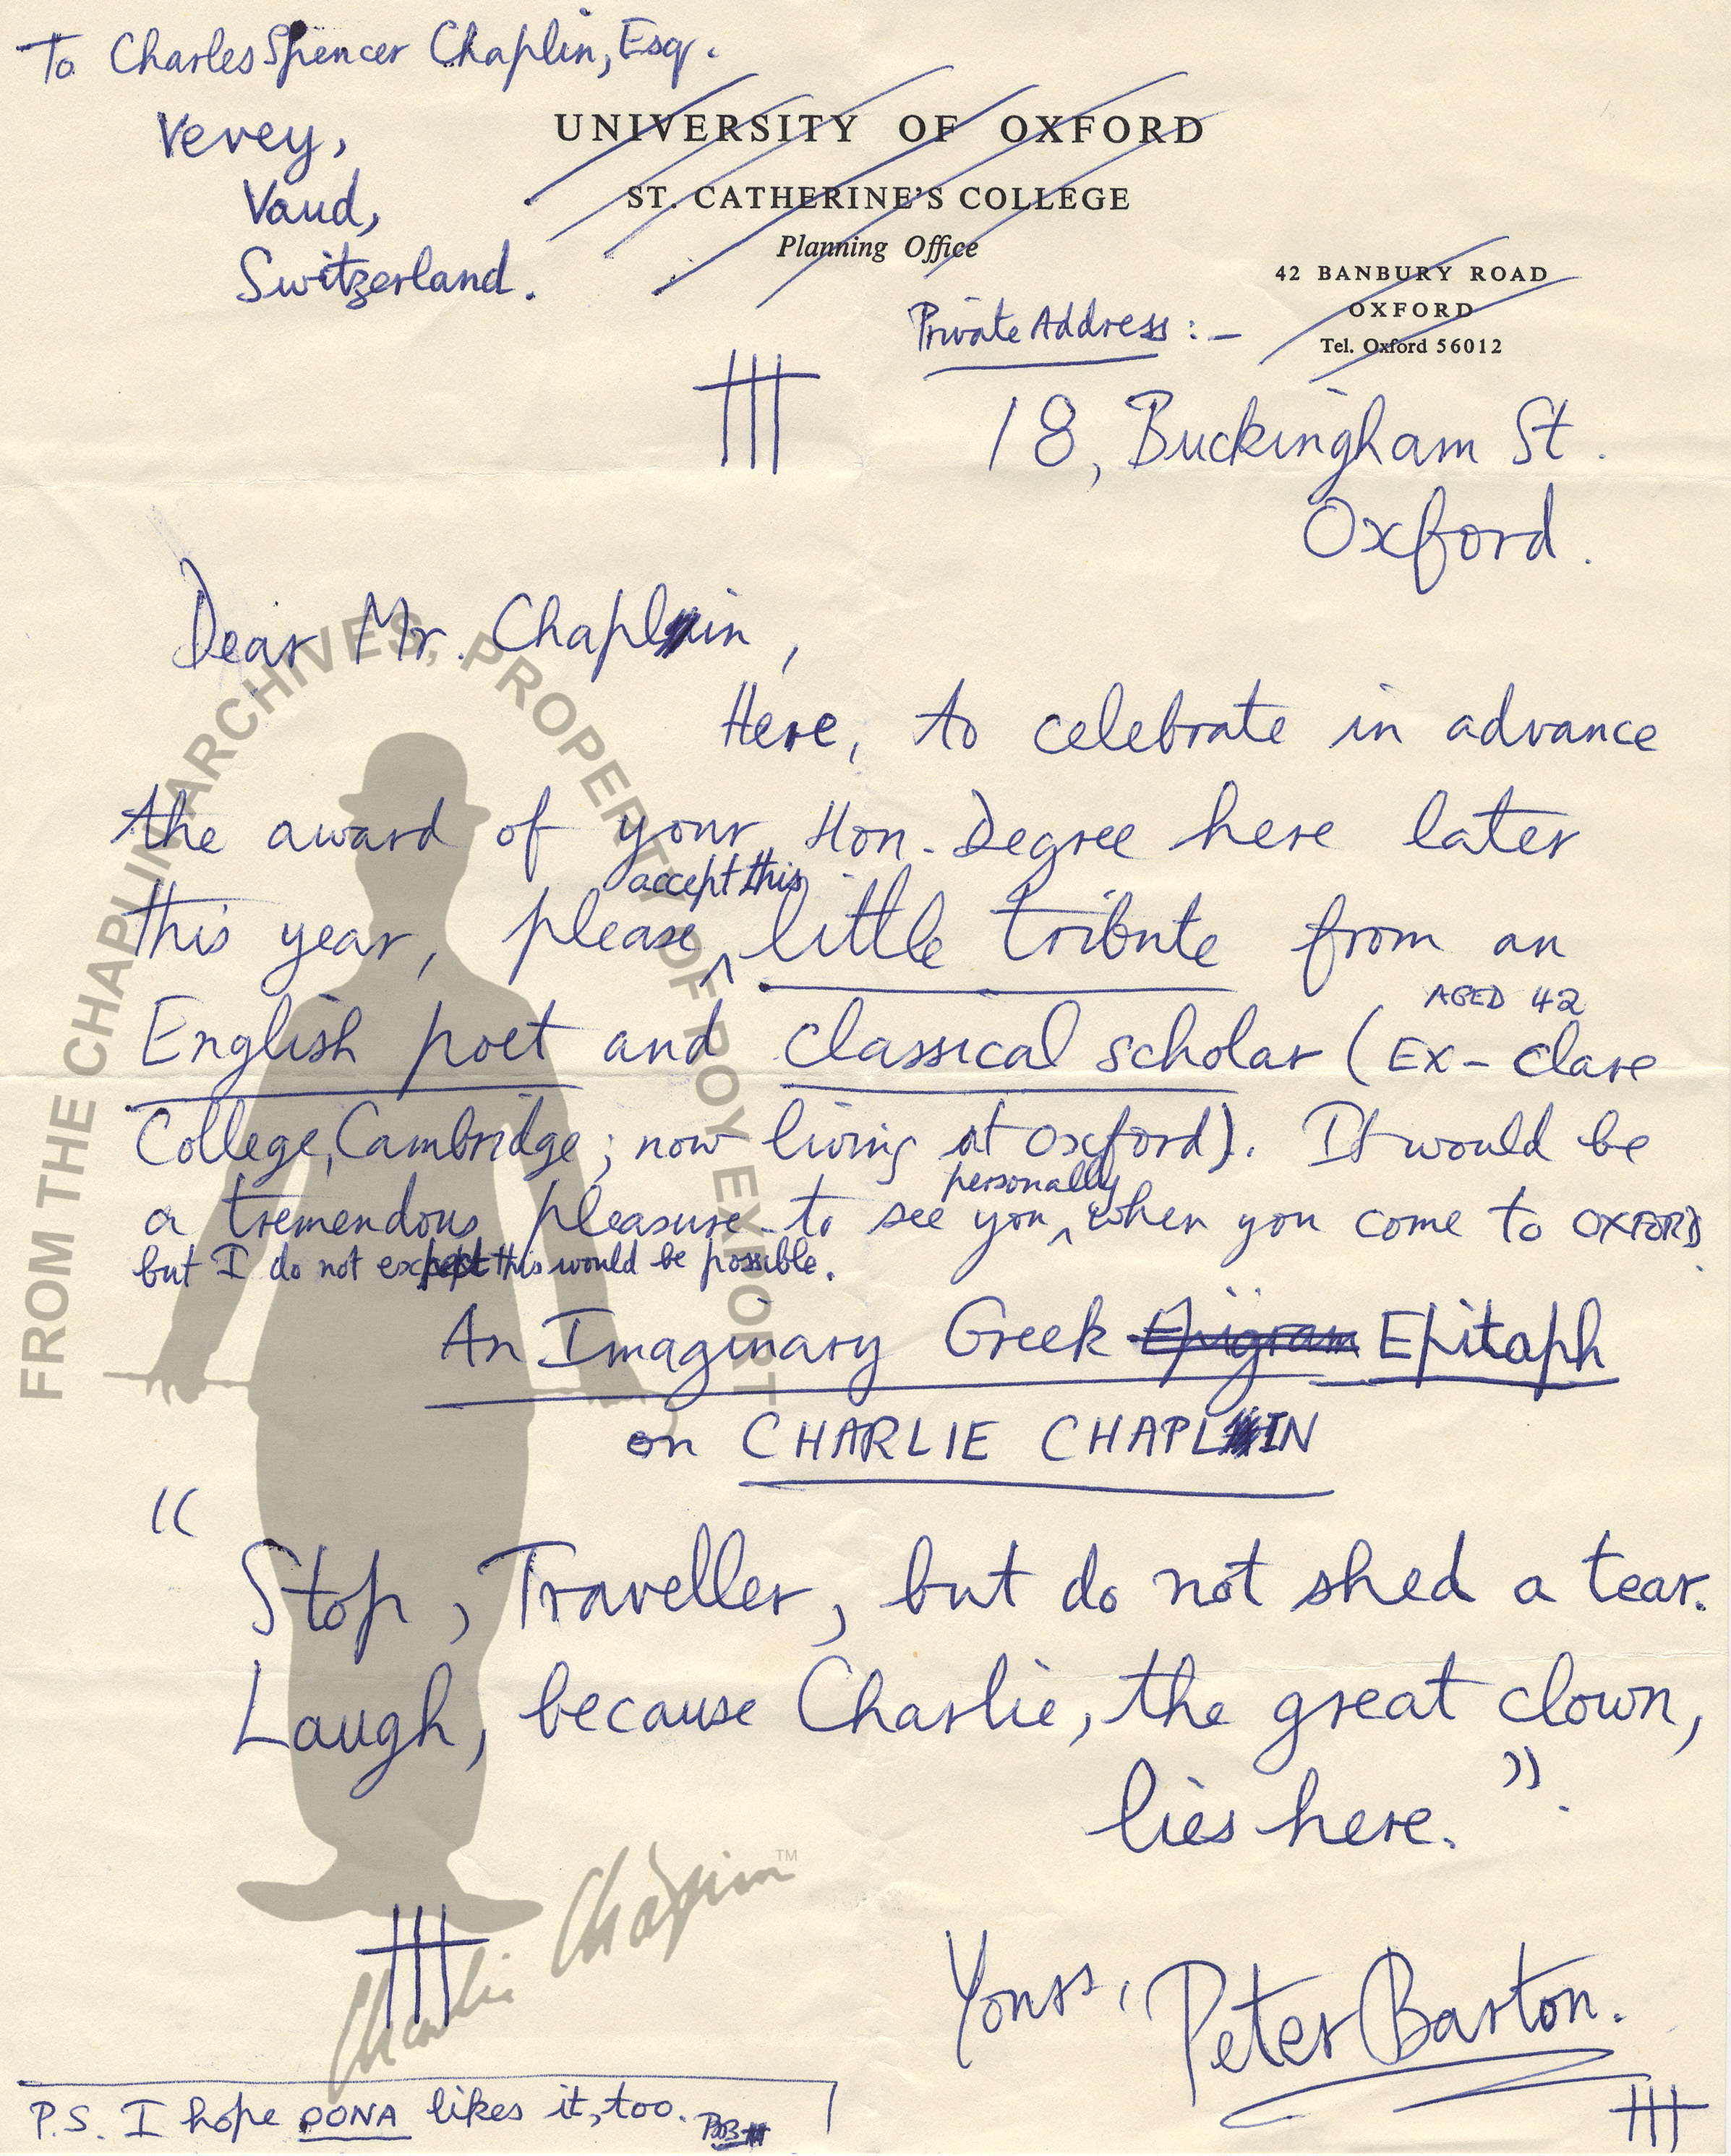 To Charles Spencer Chaplin, Esq.
Vevey,
Vaud,
Switzerland.
UNIVERSITY OF OXFORD
ST. CATHERINE'S COLLEGE
Planning Office
42 BANBURY ROAD
OXFORD
Tel. Oxford 56012
Private Address :-
18, Buckingham St.
Oxford.
Dear Mr. Chaplin,
Here, to celebrate in advance
the award of your Hon. Degree here later
this year, please ^ accept this little tribute from an
English poet and classical scholar (AGED 42 Ex-Clare
College, Cambridge; now living at Oxford). It would be
a tremendous pleasure to see you ^ personally when you come to OXFORD
but I do not expect this would be possible.
An Imaginary Greek Epigram Epitaph
on CHARLIE CHAPLIN
"Stop, Traveller, but do not shed a tear.
Laugh, because Charlie, the great clown,
lies here.".
Yours, Peter Barton.
P.S. I hope OONA likes it, too.
FROM THE CHAPLIN ARCHIVES, PROPERTY OF ROY EXPORT
Charlie Chaplin™